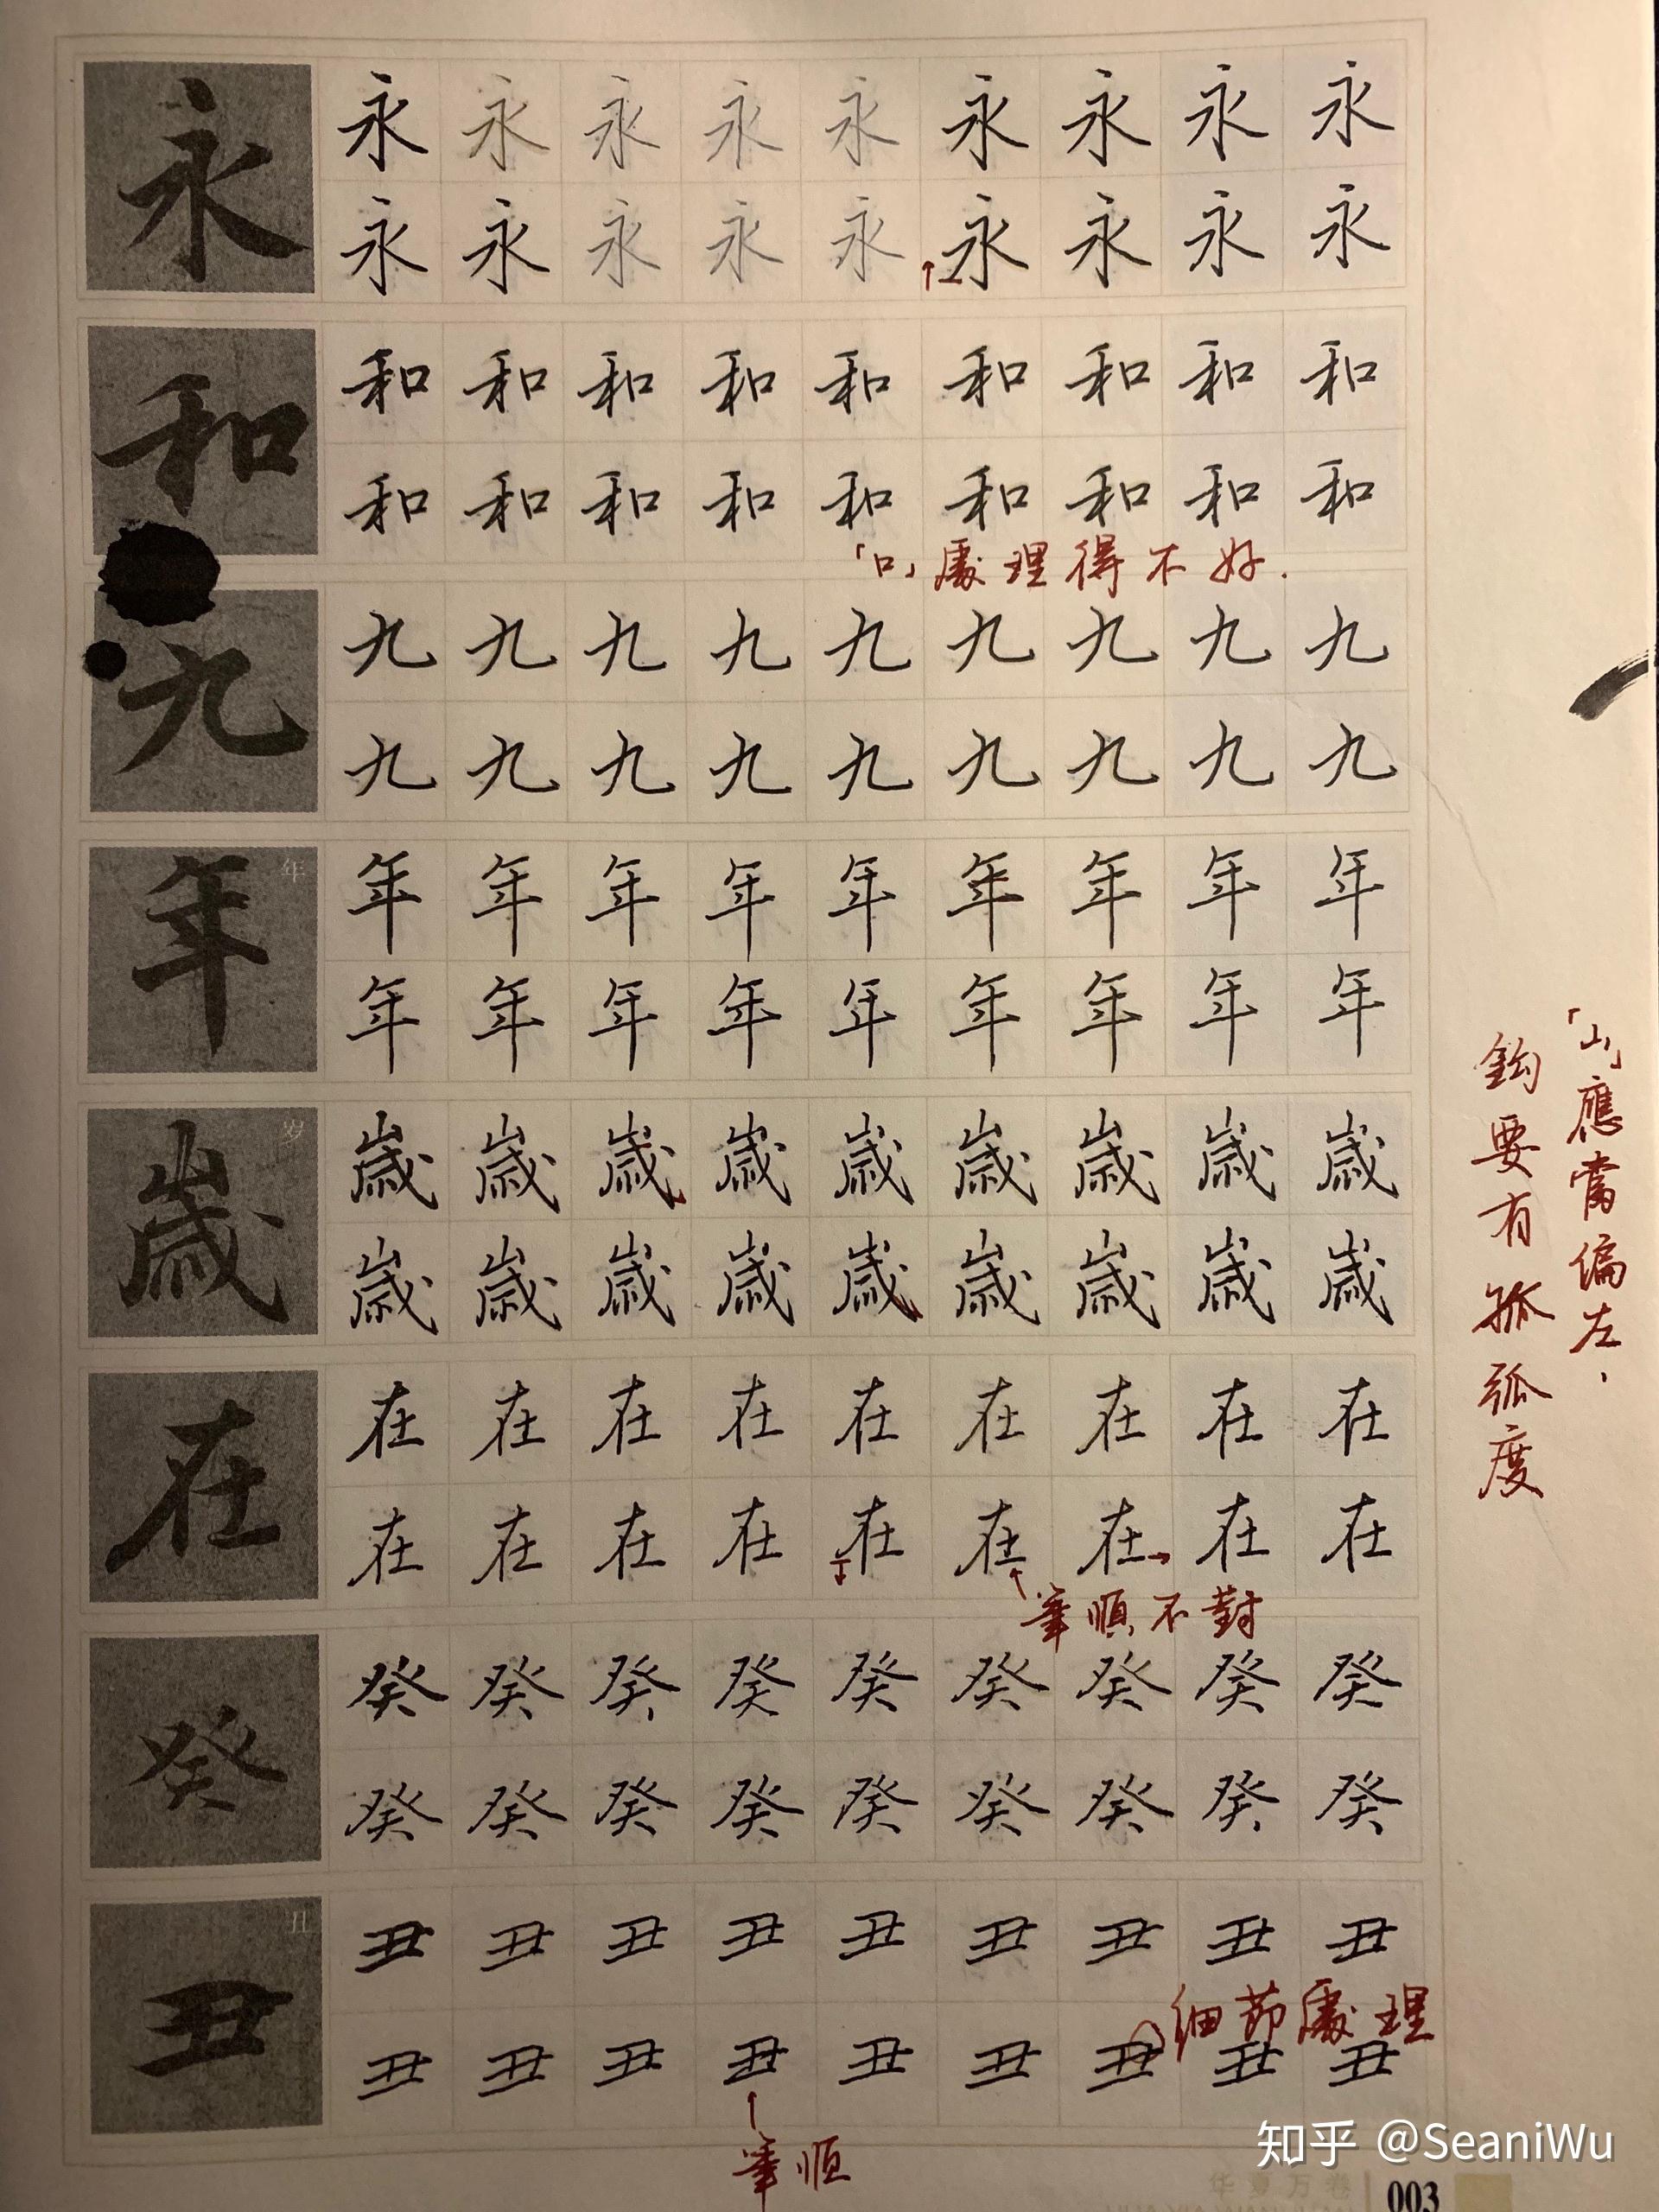 永 永 永 永 永 永 永 永 永 永
永 永 永 永 永 永 永 永 永
和 和 和 和 和 和 和 和 和 和
和 和 和 和 和 和 和 和 和
「口」處理得不好.
九 九 九 九 九 九 九 九 九 九
九 九 九 九 九 九 九 九 九
年 年 年 年 年 年 年 年 年 年 年
年 年 年 年 年 年 年 年 年
歲 岁 歲 歲 歲 歲 歲 歲 歲 歲 歲
歲 歲 歲 歲 歲 歲 歲 歲 歲
「山」應當偏左、
鈎要有弧弧度
在 在 在 在 在 在 在 在 在 在
在 在 在 在 在 在 在 在 在
筆順不對
癸 癸 癸 癸 癸 癸 癸 癸 癸 癸
癸 癸 癸 癸 癸 癸 癸 癸 癸
丑 丑 丑 丑 丑 丑 丑 丑 丑 丑 丑
細節處理
丑 丑 丑 丑 丑 丑 丑 丑 丑
筆順
知乎 @SeaniWu
华夏万卷
003